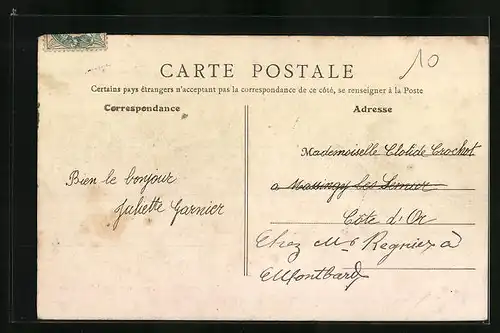 CARTE POSTALE
10
Certains pays étrangers n'acceptant pas la correspondance de ce côté, se renseigner à la Poste
Correspondance
Adresse
Bien le bonjour
Juliette Garnier
Mademoiselle Clotide Crochot
a Massingy les Semur
Côte d'Or
Chez Mr Regnier à
Montbard